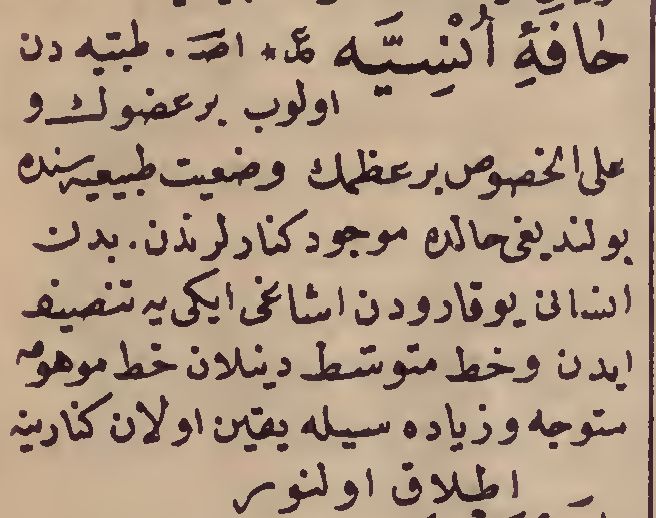 حافۀ أُنْسِيَّه عت* اصـ. طبيه دن
اولوب برعضوك و
على الخصوص برعظمك وضعيت طبيعيه سنده
بولنديغى حالده موجود كنارلرندن. بدن
انسانى يوقارودن اشاغى ايكى يه تنصيف
ايدن وخط متوسط دينلان خط موهومه
متوجه وزياده سيله يقين اولان كنارينه
اطلاق اولنور